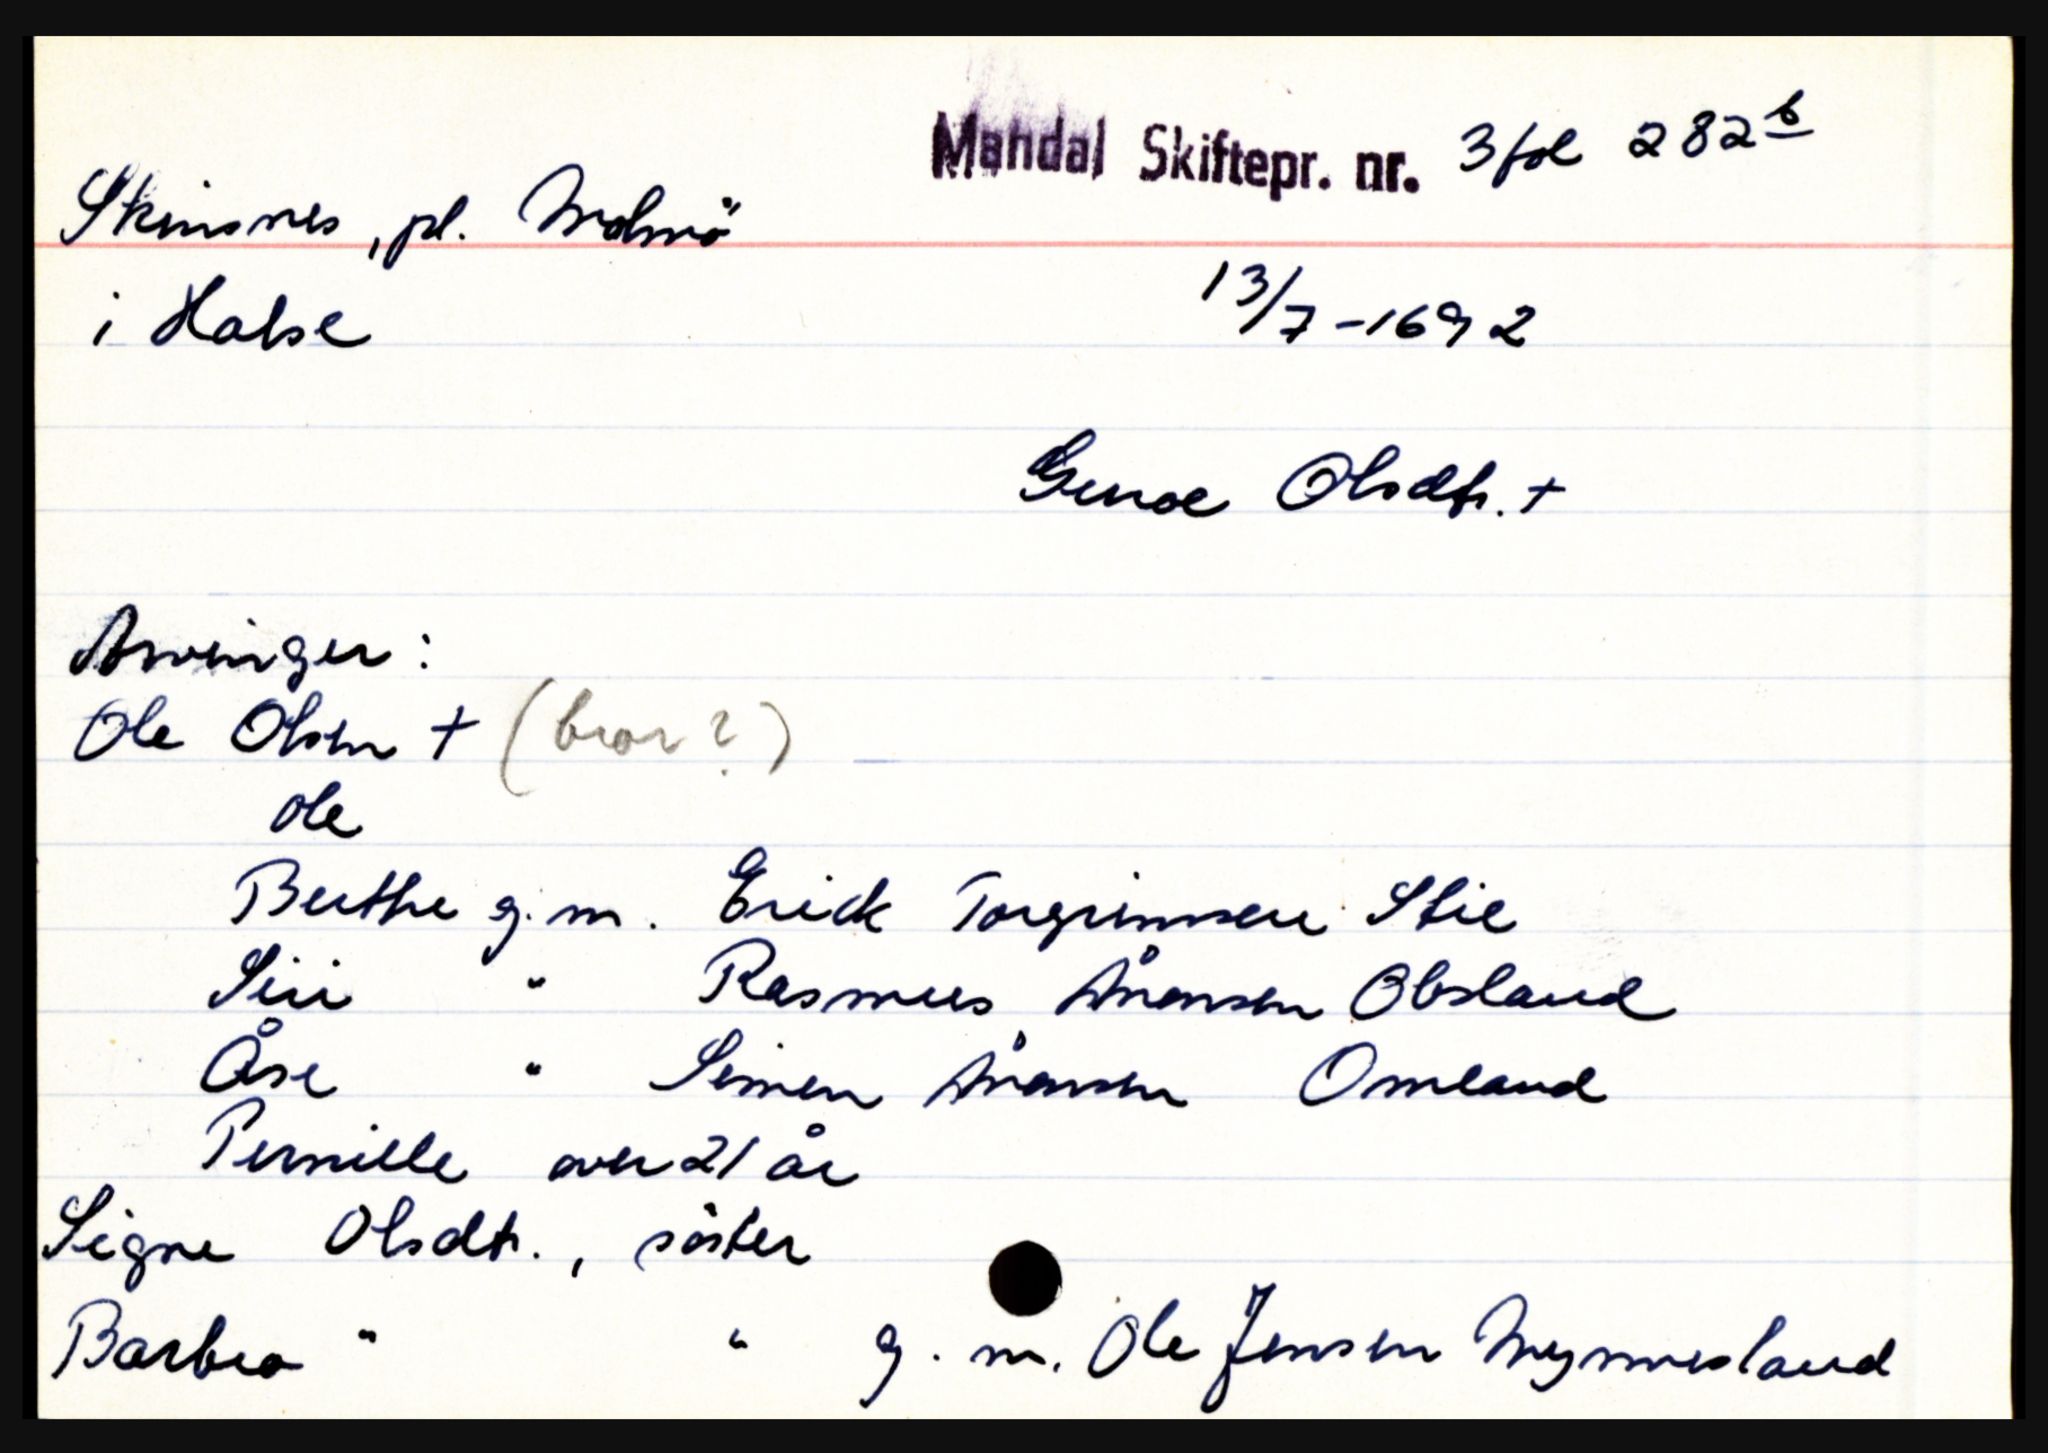 Mandal Skiftepr. nr. 3 fol 282 b
Skinsnes, pl. Malmö
i Halse
13/7-1692
Guroe Olsdtr. +
Arvinger:
Ole Olsen + (bror?)
Ole
Berthe g.m. Erick Torgrimsen Stie
Siri " Rasmus Ånonsen Obsland
Åse " Simen Ånonsen Omland
Pernille over 21 år
Signe Olsdtr., söster
Barbro " " g.m. Ole Jensen